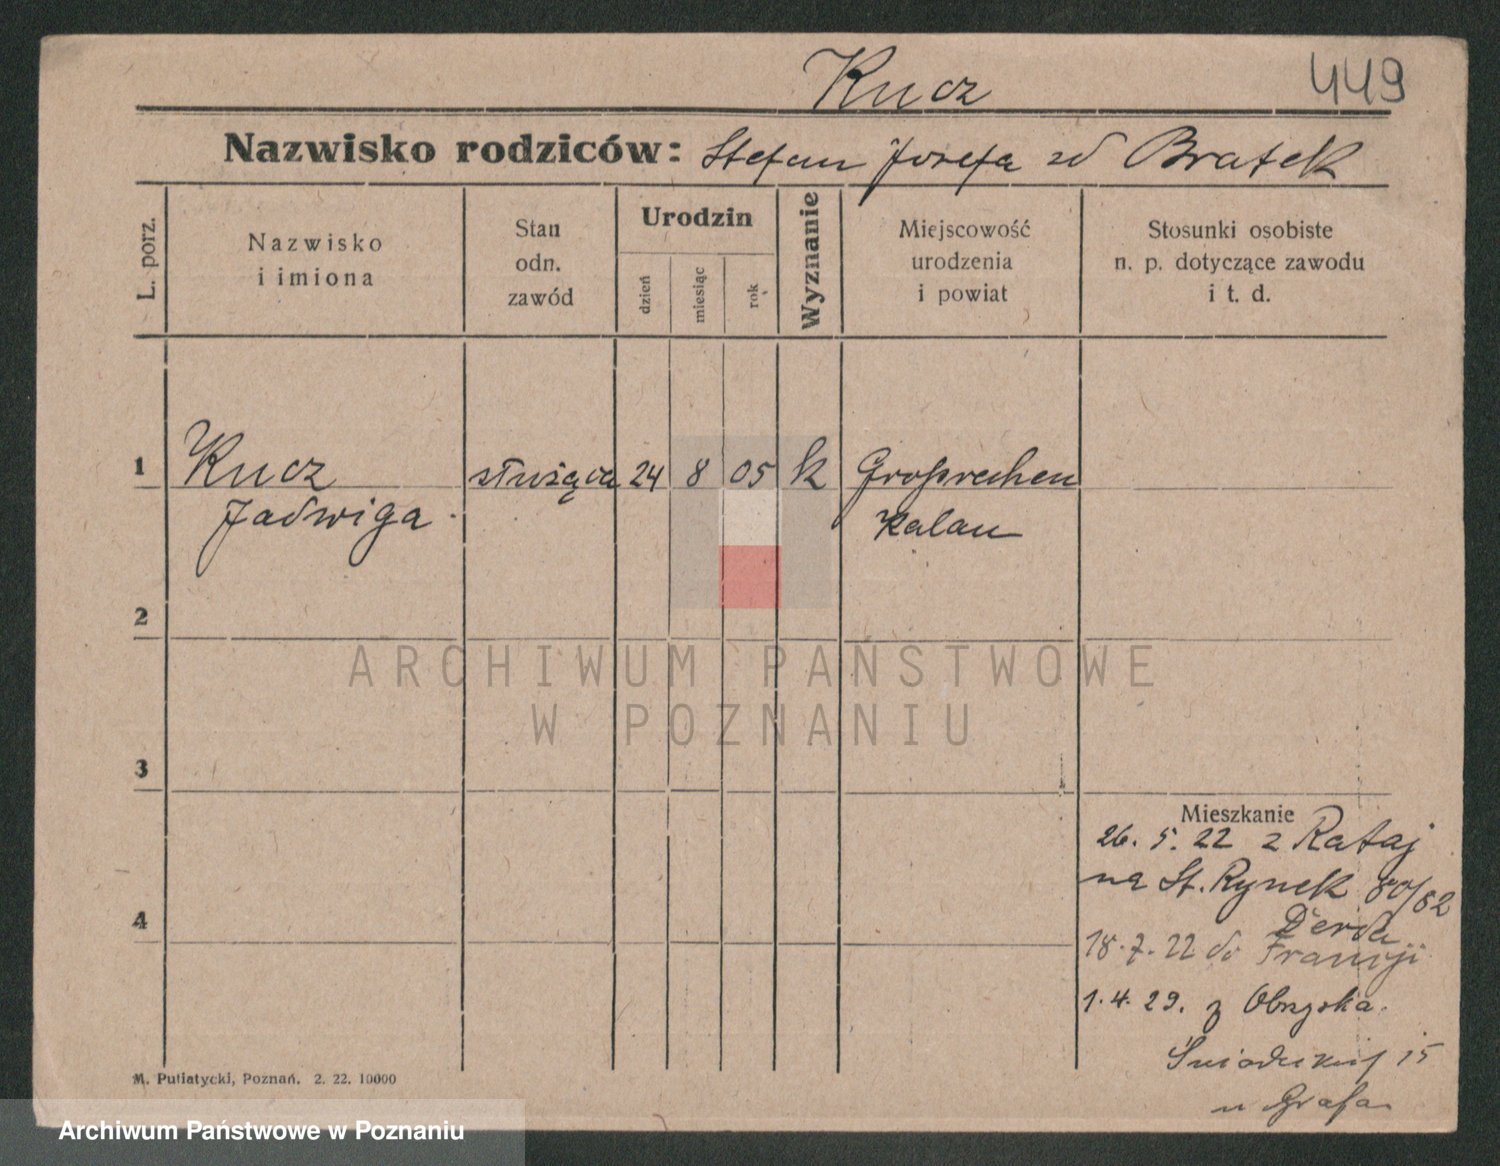 Kucz
449
Nazwisko rodziców: Stefan Józefa zd Bratek
L. porz.
Nazwisko
i imiona
Stan
odn.
zawód
Urodzin
dzień
miesiąc
rok
Wyznanie
Miejscowość
urodzenia
i powiat
Stosunki osobiste
n. p. dotyczące zawodu
i t. d.
1 Kucz służąca 24 8 05 k
Jadwiga
Kalau
2
ARCHIWUM PAŃSTWOWE
W POZNANIU
3
Mieszkanie
26. 5. 22 z Rataj
na St. Rynek 80/82
Derda
4
18. 7. 22 do Francji
1. 4. 29. z Obrzycka.
15
u Grafa
M. Putiatycki, Poznań. 2. 22. 10000
Archiwum Państwowe w Poznaniu